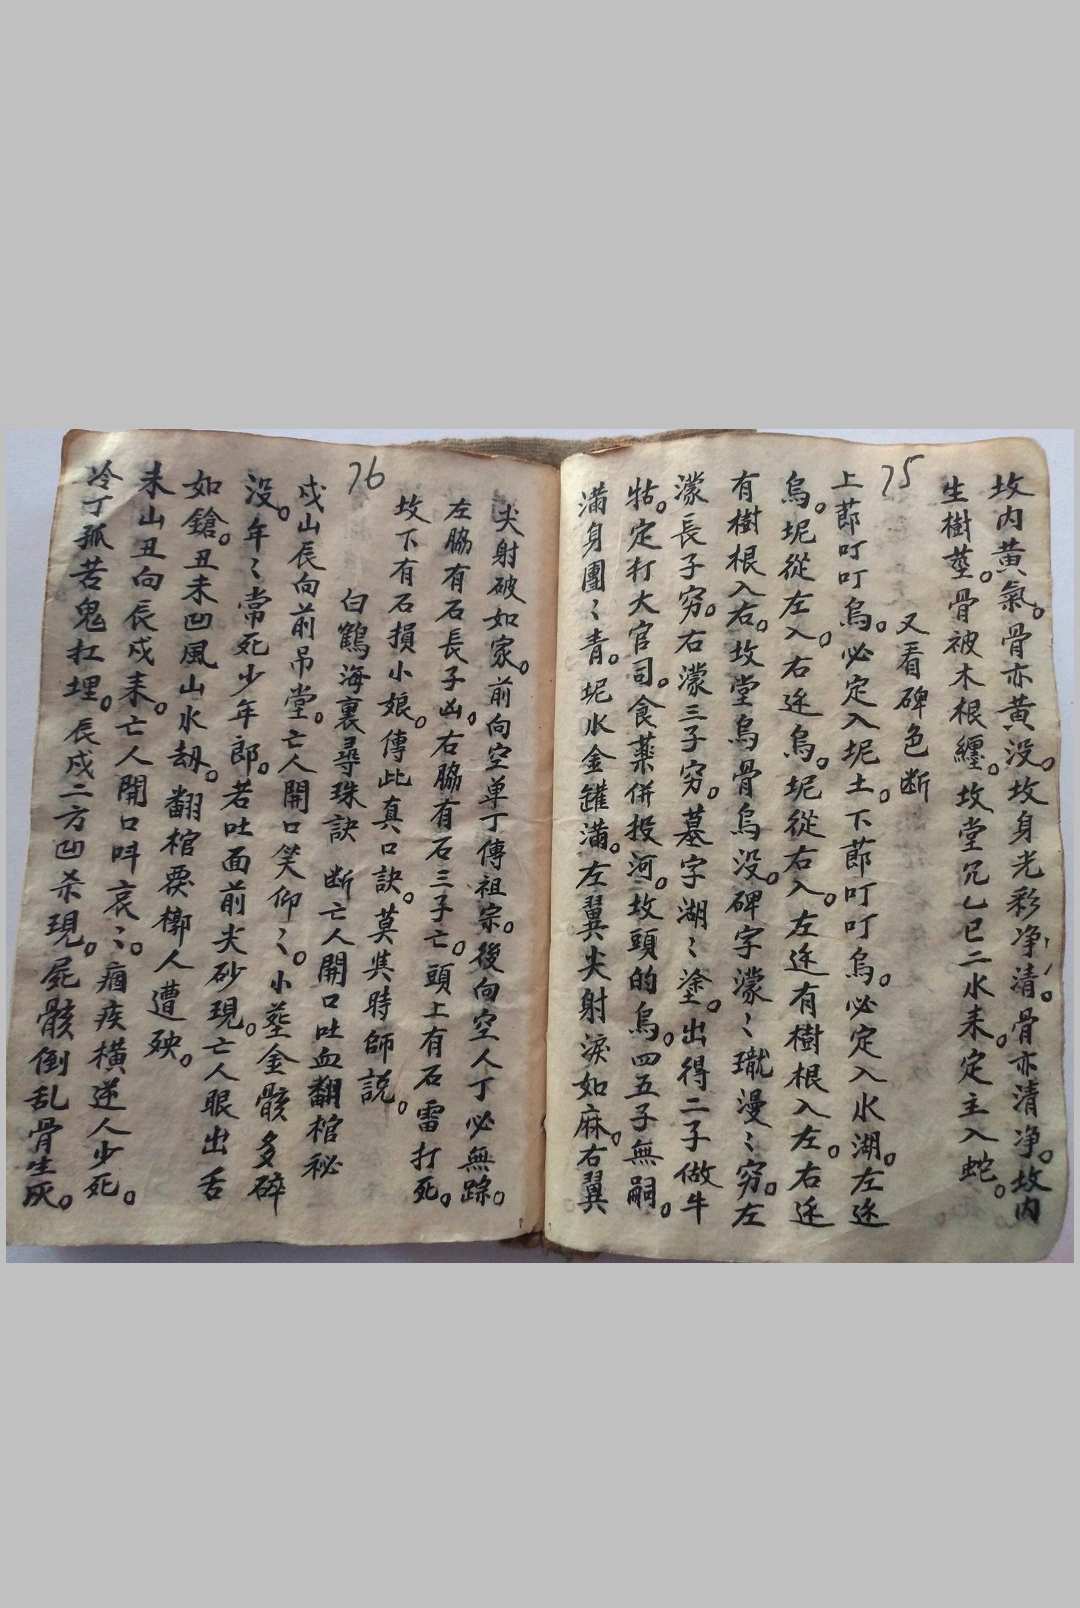 坟内黃氣。骨亦黄没。坟身光彩净清。骨亦清净。坟内
生樹蔃。骨被木根纏。坟堂見乙巳二水耒。定主入蛇。
又看碑色断
75
上莭叮叮烏。必定入坭土。下莭叮叮烏。必定入水湖。左迯
烏。坭從左入。右迯烏。坭從右入。左迯有樹根入左。右迯
有樹根入右。坟堂烏骨烏没。碑字濛〻瓏漫〻穷。左
濛長子穷。右濛三子穷。墓字湖〻塗。出得二子做牛
牯。定打大官司。食藥併投河。坟頭的烏。四五子無嗣。
滿身團〻青。坭水金罐滿。左翼尖射淚如麻。右翼
尖射破如家。前向空单丁傳祖宗。後向空人丁必無踪。
左脇有石長子凶。右脇有石三子亡。頭上有石雷打死。
坟下有石損小娘。傳此真口訣。莫㒷時師説。
白鶴海裏尋珠訣 断亡人開口吐血翻棺秘
76
戍山辰向前吊堂。亡人開口笑仰〻。小塟金骸多碎
没。年〻常死少年郎。若吐面前尖砂現。亡人眼出舌
如鎗。丑未凹風山水刼。翻棺覄槨人遭殃。
未山丑向辰戍耒。亡人開口呌哀〻。痼疾横逆人少死。
冷丁孤苦鬼扛埋。辰戍二方凹杀現。屍骸倒乱骨生灰。